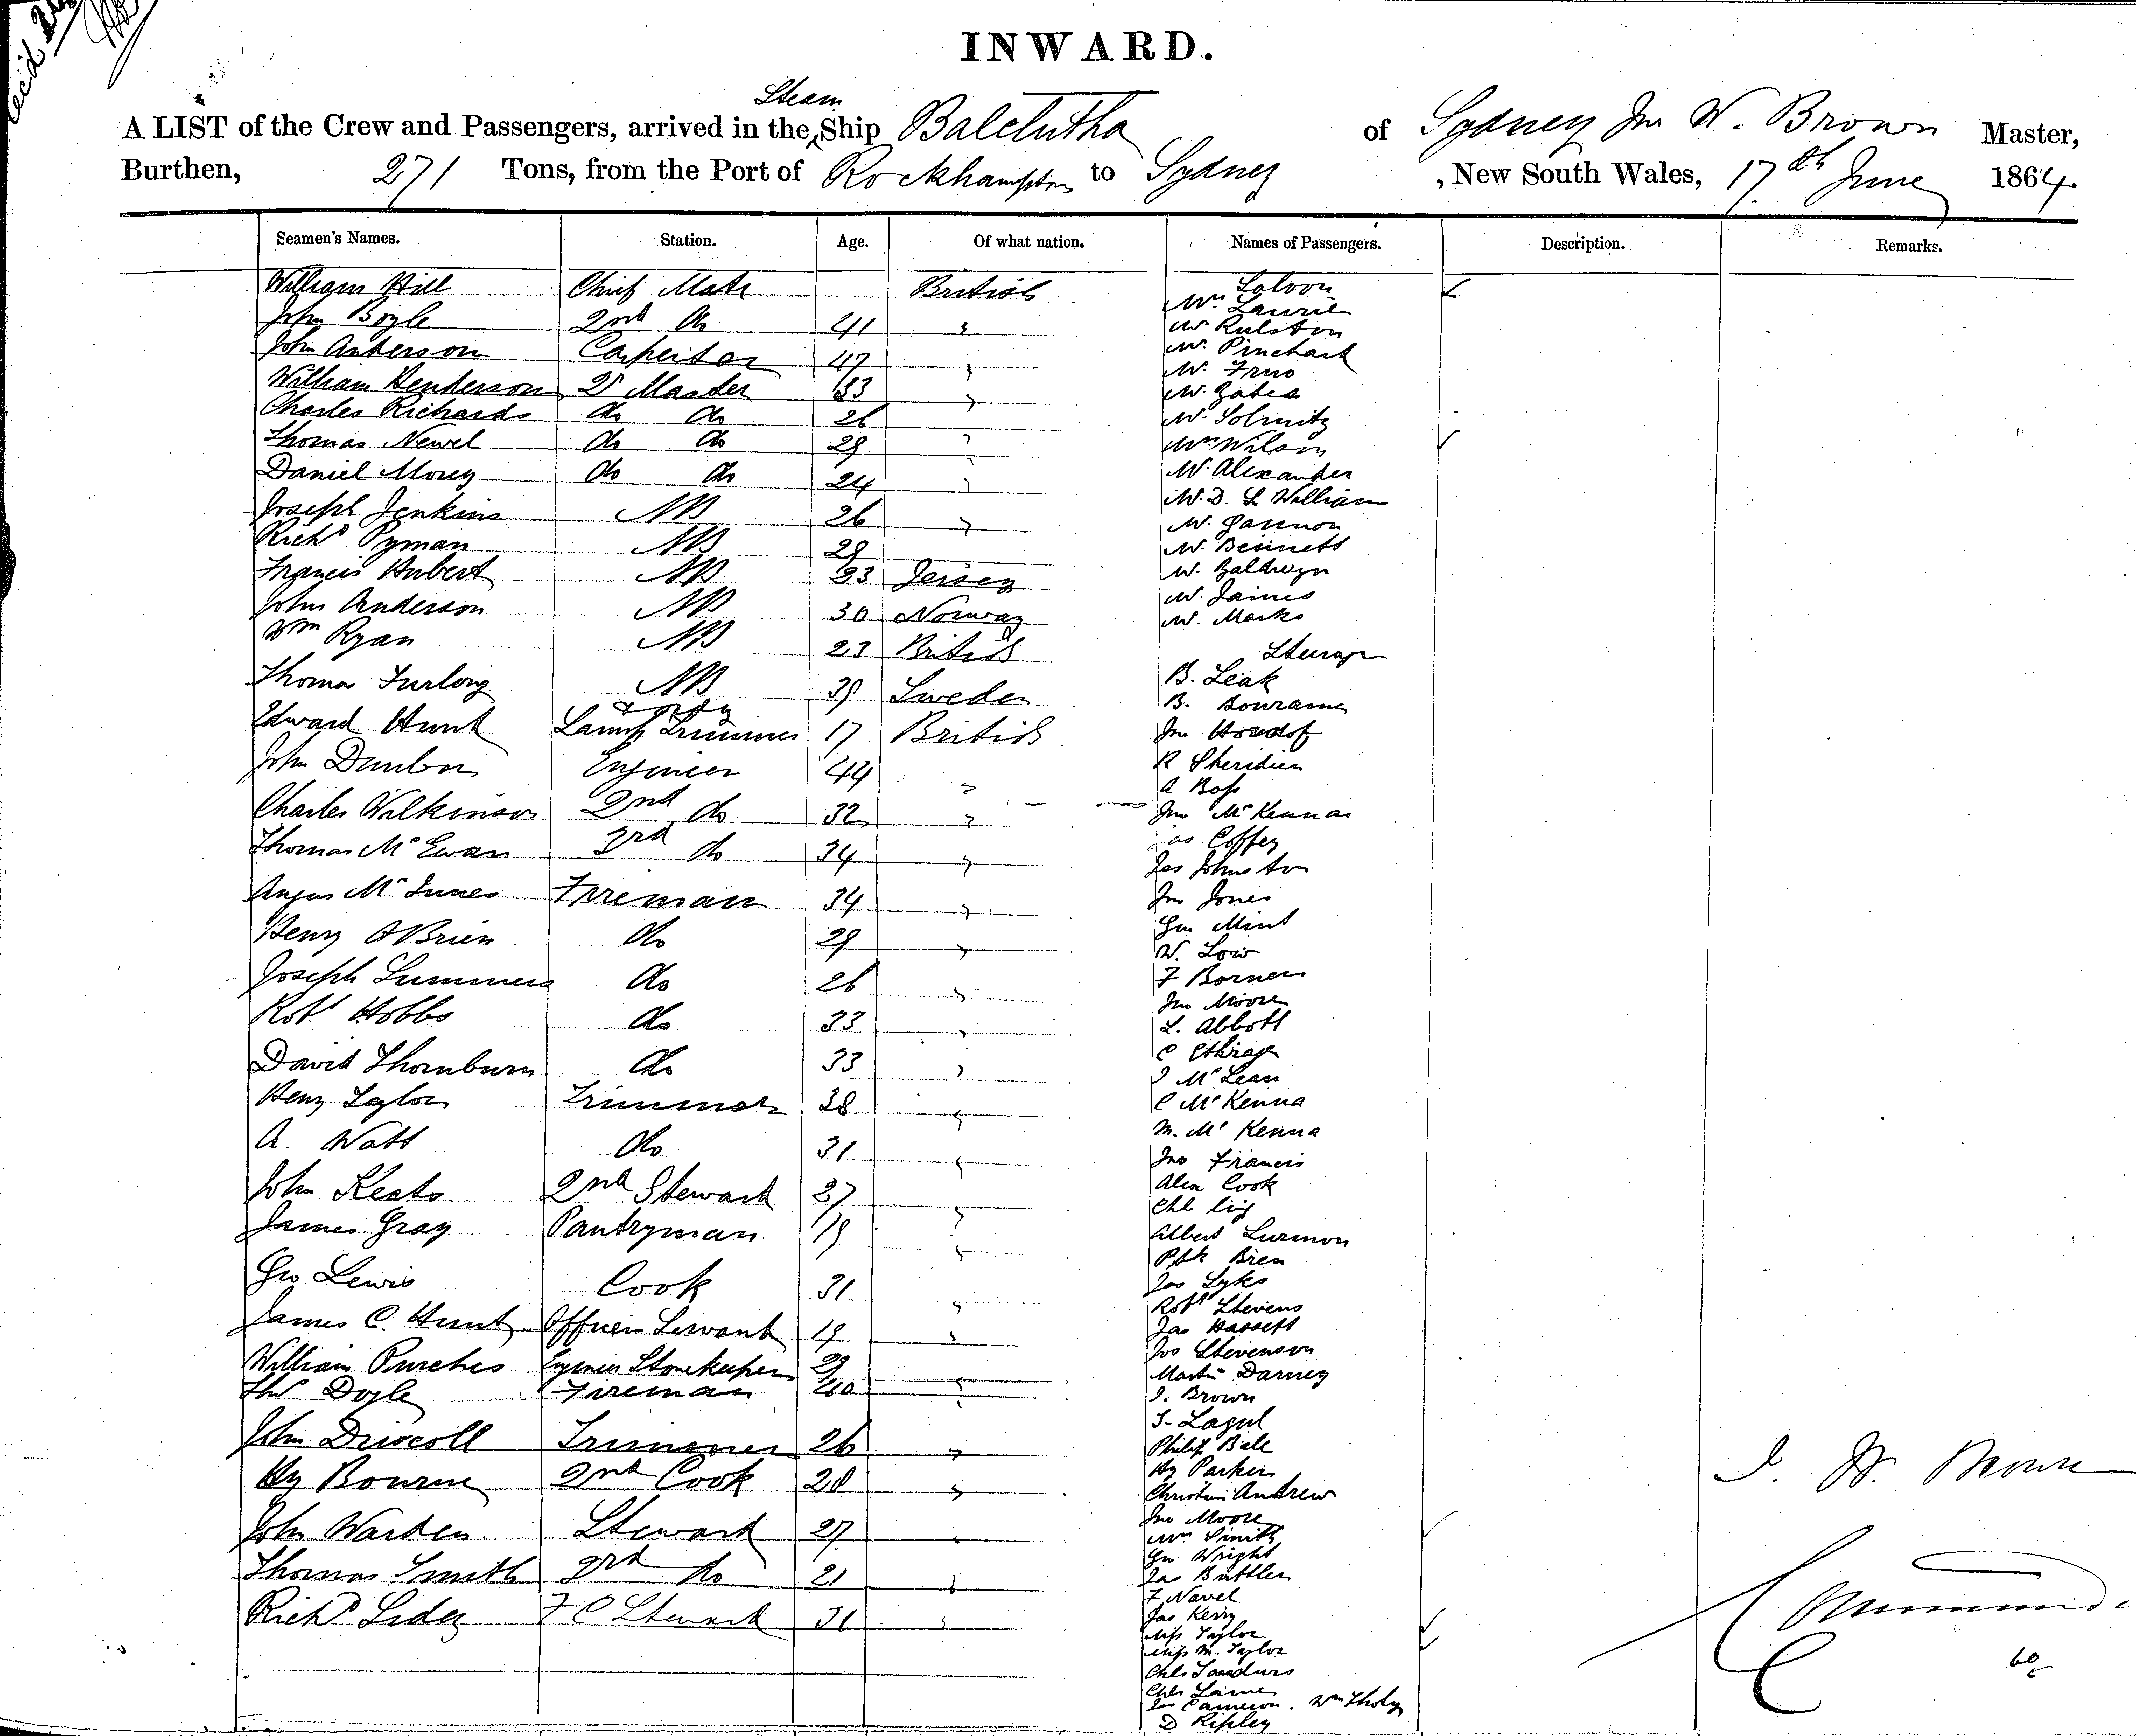 INWARD.
Steam
A LIST of the Crew and Passengers, arrived in the Ship Balclutha of Sydney Jno W. Brown Master,
Burthen, 271 Tons, from the Port of Rockhampton to Sydney, New South Wales, 17th June 1864.
Seamen's Names. Station. Age. Of what nation. Names of Passengers. Description. Remarks.
William Hill Chief Mate British
John Boyle 2nd do 41 "
John Anderson Carpenter 47 "
William Henderson Qr Master 33 "
Charles Richards do do 26 "
Thomas Newel do do 29 "
Daniel Morey do do 24 "
Joseph Jenkins AB 26 "
Richd Pyman AB 29
Francis Hubert AB 33 Jersey
John Anderson AB 30 Norway
Wm Ryan AB 23 British
Thomas Furlong AB 39 Sweden
Edward Hunt Lamp Trimmer 17 British
John Dunbar Engineer 44 "
Charles Wilkinson 2nd do 32 "
Thomas McEwan 3rd do 34 "
Angus McInnes Fireman 34 "
Henry O'Brien do 29 "
Joseph Summers do 26 "
Robt Hobbs do 33 "
David Thornburn do 33 "
Henry Taylor Trimmer 38 "
A. Watt do 31 "
John Keats 2nd Steward 27 "
James Gray Pantryman 19 "
Geo Lewis Cook 31 "
James C. Hunt Officers Servant 19 "
William Purches Engineer Storekeeper 29 "
Thos Doyle Fireman 40 "
John Driscoll Trimmer 26 "
Hy Bourne 2nd Cook 28 "
John Warden Steward 27 "
Thomas Smith 3rd do 21 "
Richd Sidey F C Steward 31 "
Saloon
Mrs Laurie
Mr Rulston
Mr Pinchart
Mr
Mr Gates
Mr Solmitz
Mrs Wilson
Mr Alexander
Mr D. L William
Mr Gannon
Mr Bennett
Mr Baldwyn
Mr James
Mr Marks
Steerage
B. Leak
B.
Jno
R Sheridan
A Boss
Jno McKenna
Coffey
Jas Johnston
Jno Jones
Geo Mint
W. Low
F Borner
Jno Moore
L. Abbott
C
J McLean
C McKenna
M. McKenna
Jno Francis
Alex Cook
Chl
Albert Lurmon
Patk Bren
Jas Syks
Robt Stevens
Jas Hassett
Jos Stevenson
Martin Darney
J. Brown
Philip Bale
Hy Parker
Christian Andrew
Jno Moore
Mrs Smith
Geo Wright
Jas Buttler
F Navel
Jas Kerry
Miss Taylor
Miss M. Taylor
Chls Sandurs
Chls Laine
Jno Cameron. Wm
D Ripley
J. W. Brown
60